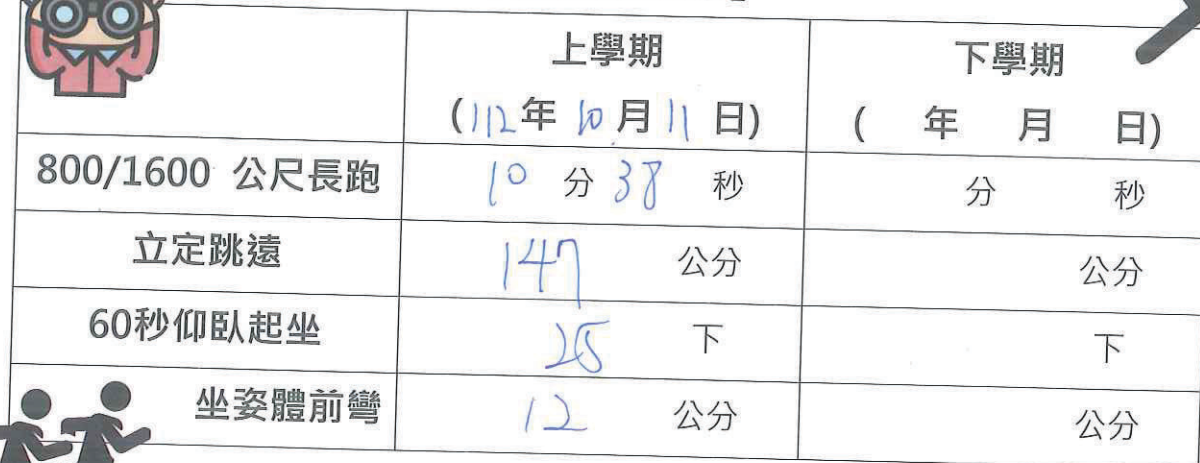 上學期 下學期
(112年10月11日) ( 年 月 日)
800/1600 公尺長跑 10 分 38 秒 分 秒
立定跳遠 147 公分 公分
60秒仰臥起坐 25 下 下
坐姿體前彎 12 公分 公分